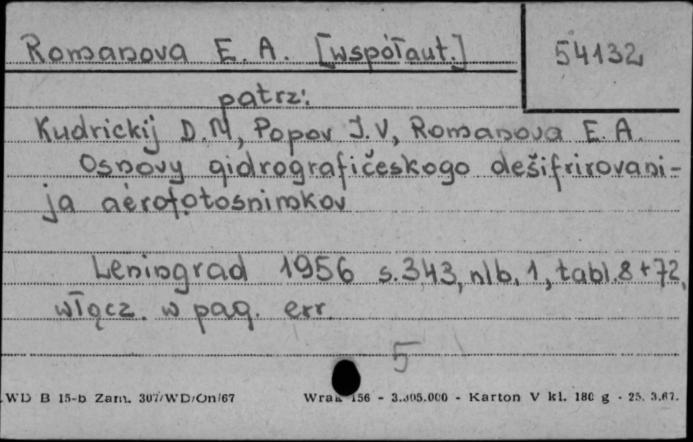 Romanova E. A. [współaut.]
54132
patrz:
Kudrickij D.M, Popov I.V, Romanova E. A.
Osnovy gidrografičeskogo dešifrirovani-
ja aèrofotosnimkov
Leningrad 1956 s. 343, nlb. 1, tabl. 8+72,
włącz. w pag. err.
5
WD B 15-b Zam. 307/WD/On/67
156 - 3.305.000 - Karton V kl. 180 g - 25. 3.67.